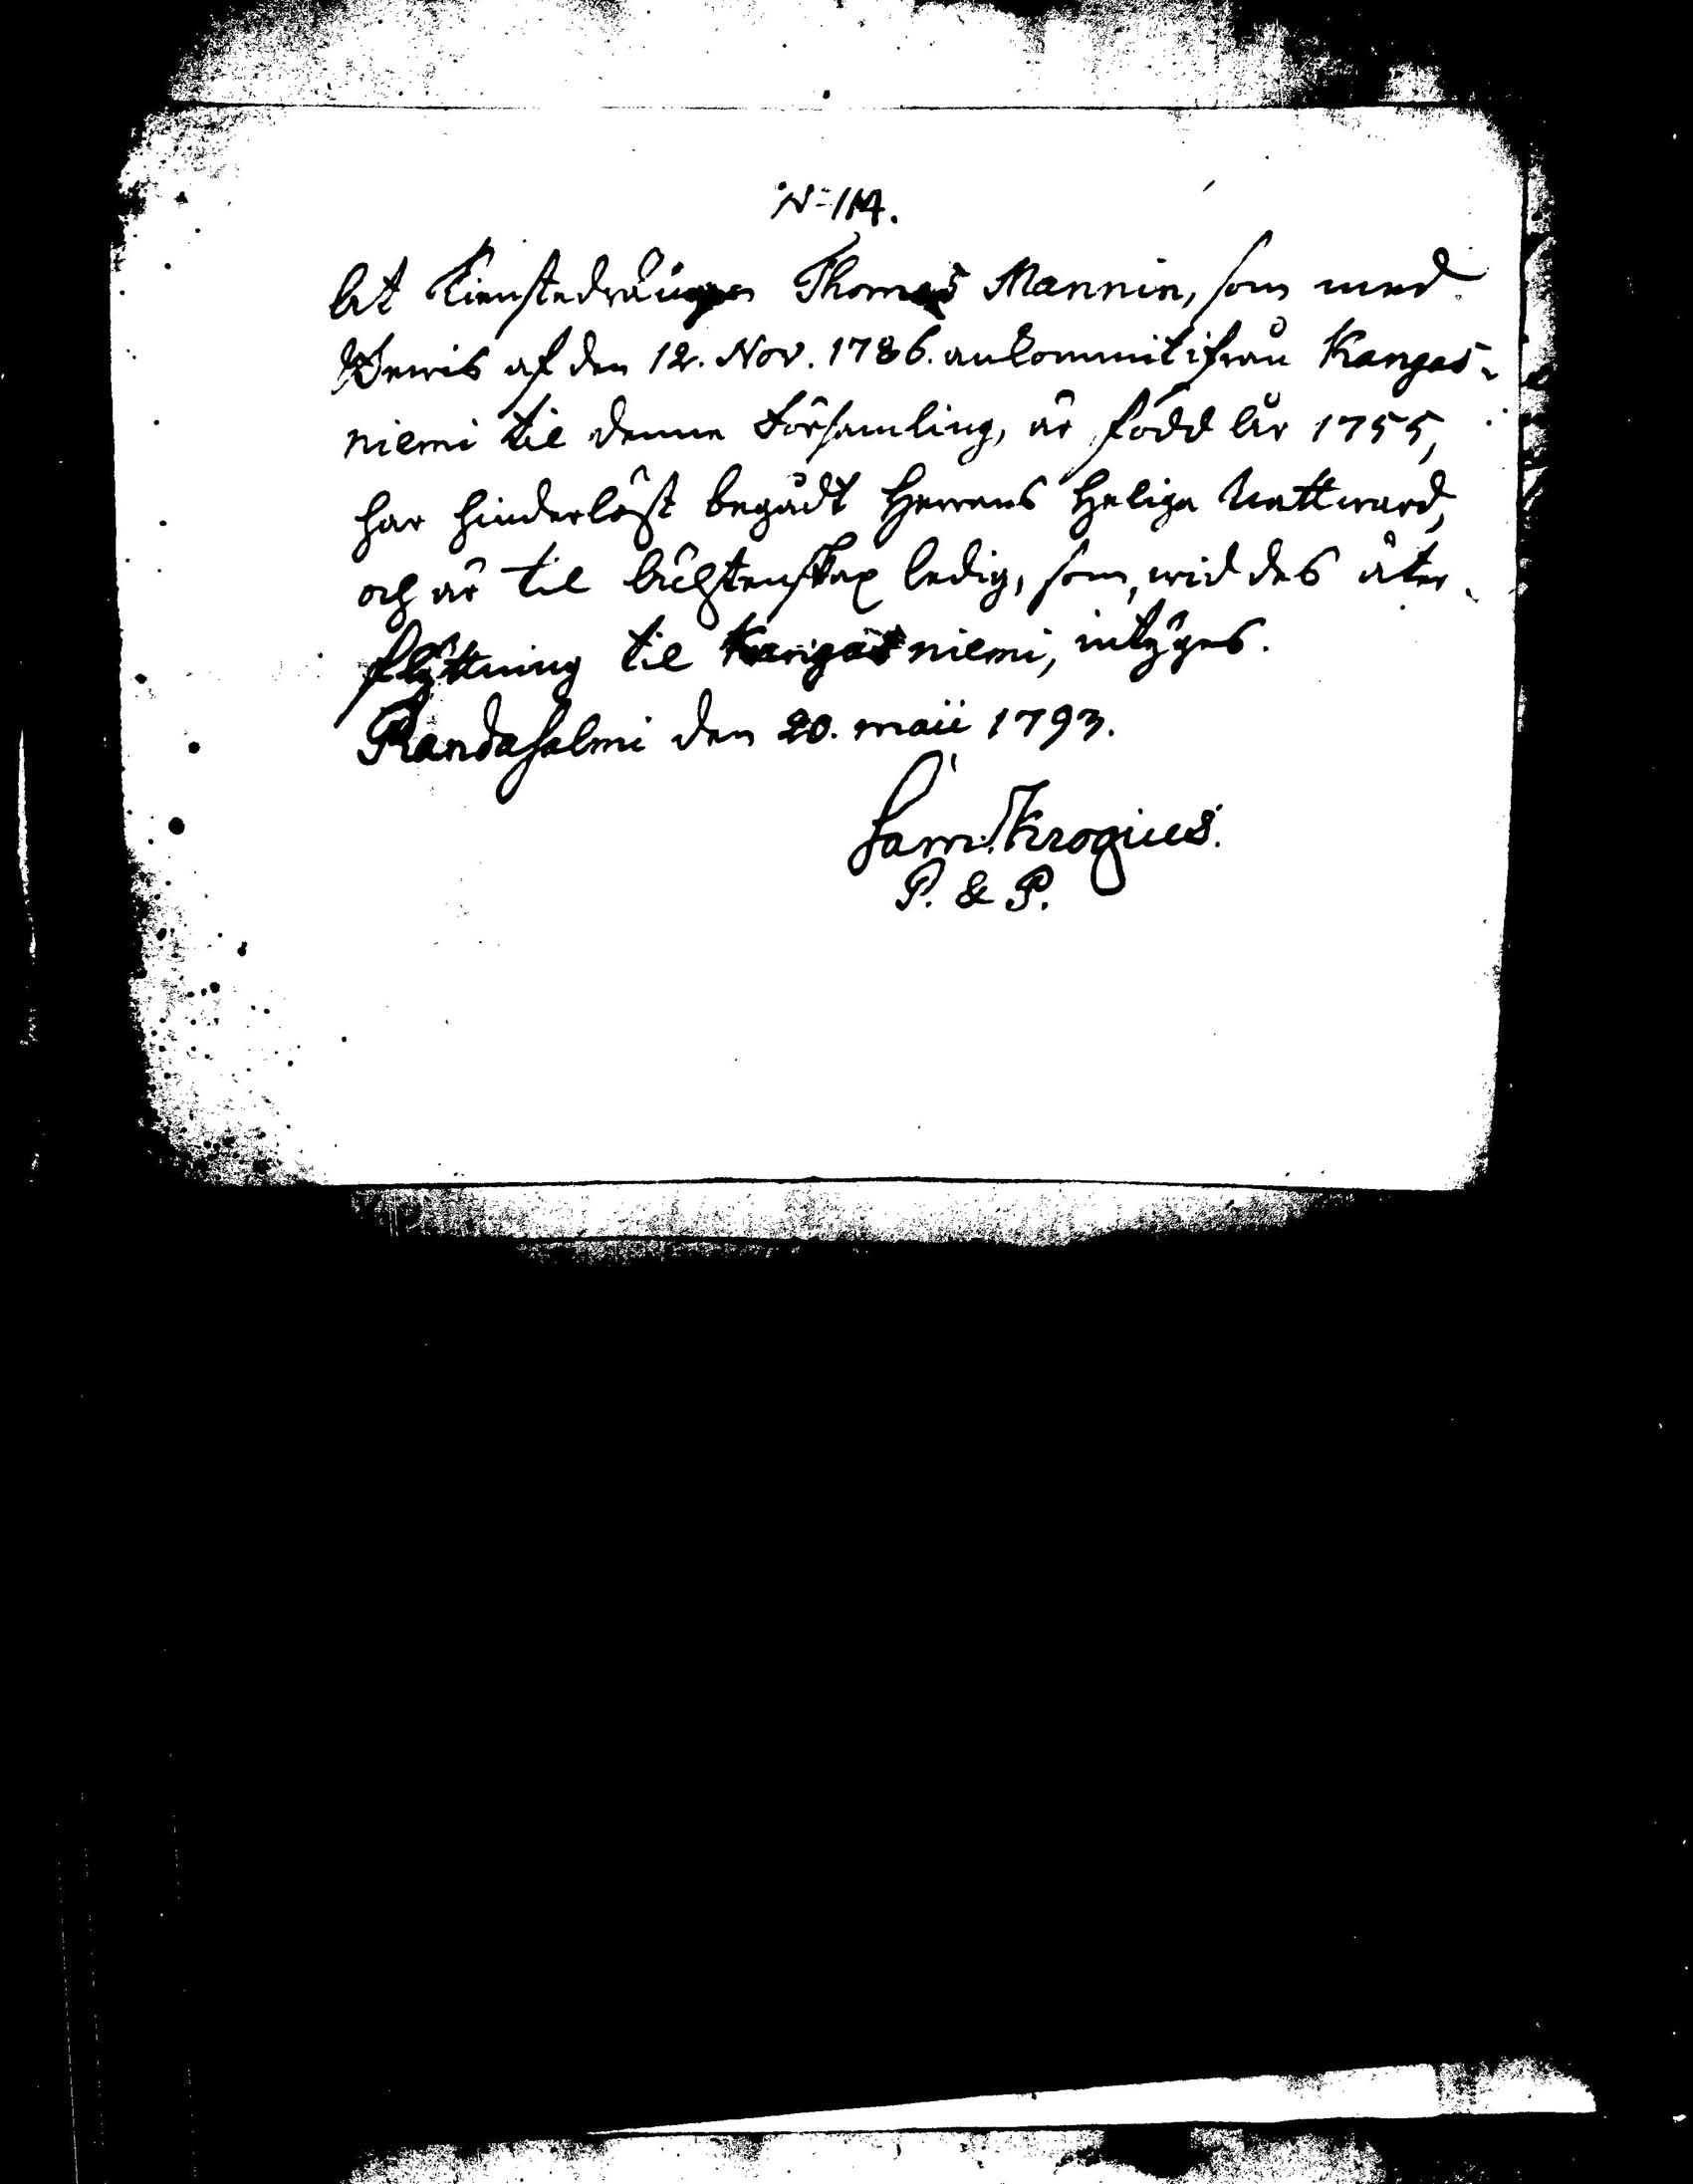 N=114.
At Tienstedrängen Thomas Mannin, som med
Bewis af den 12. Nov. 1786. ankommit ifrån Kangas-
niemi til denne Församling, är född År 1755,
har hinderlöst begådt Herrans Heliga Nattward,
och är til Ächtenskap ledig, som, wid des åter-
flyttning til Kangasniemi, intÿges.
Randasalmi den 20. maii 1793.
Sam. Krogius.
P. & P.